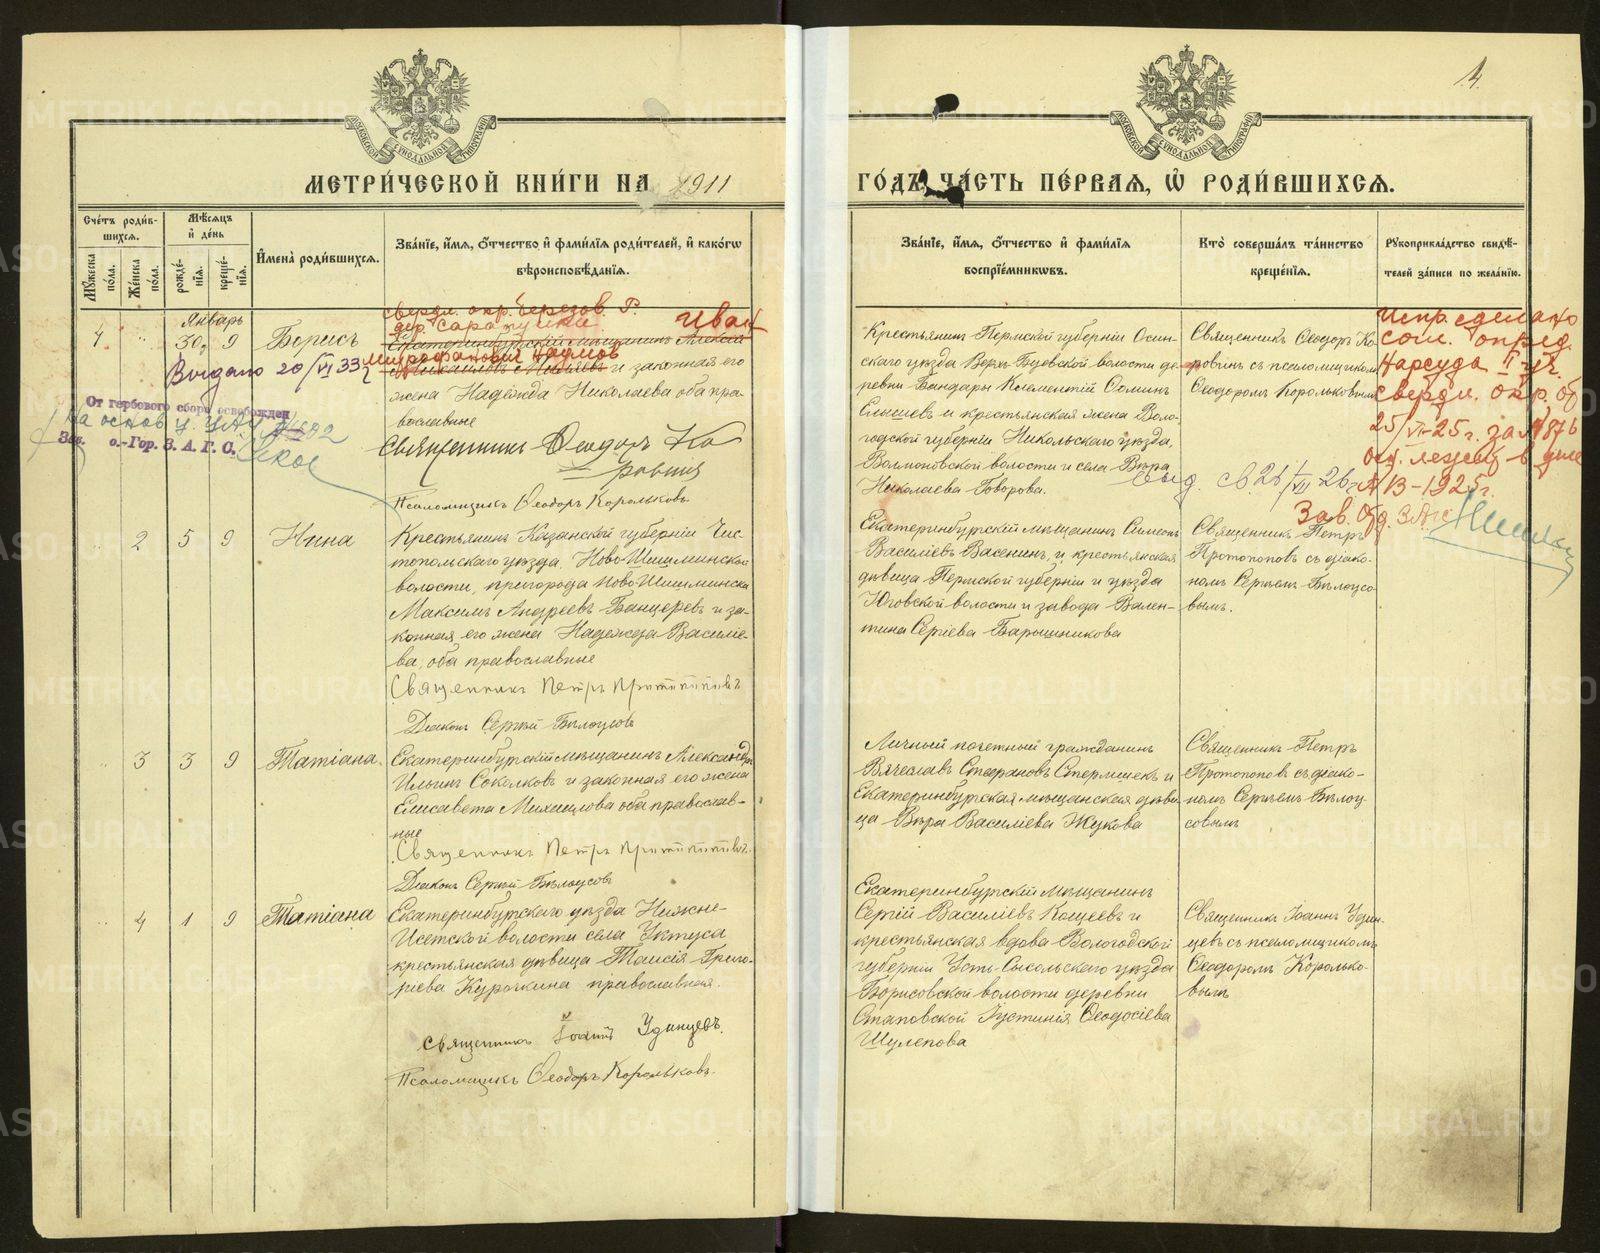 4
МОСКОВСКОЙ СѴНОДАЛЬНОЙ ТИПОГРАФІИ
МОСКОВСКОЙ СѴНОДАЛЬНОЙ ТИПОГРАФІИ
МЕТРИ́ЧЕСКОЙ КНИ́ГИ НА 1911
ГО́ДЪ, ЧА́СТЬ ПЕ́РВАЯ, Ѡ РОДИ́ВШИХСЯ.
Сче́тъ роди́в-
шихся.
Мꙋ́жеска по́ла.
Же́нска по́ла.
Мѣ́сяцъ и де́нь
рожде́нія.
креще́нія.
И́мена̀ роди́вшихся.
Зва́нїе, и́мя, о́тчество и фами́лїя роди́телей, и како́гѡ
вѣроисповѣ́данїя.
Зва́нїе, и́мя, о́тчество и фами́лїя
воспрїе́мникѡвъ.
Кто̀ соверша́лъ та́инство
креще́нїя.
Рꙋкоприкла́дство свидѣ́-
телей за́писи по жела́нїю.
Январь
1 " 30 9 Борисъ
свердл. окр. березов. Р.
дер. Сарапулки Иван
Екатеринбургскій мѣщанинъ Алексѣй
Митрофанович Наумов
и законная его
жена Надежда Николаева оба пра-
вославные
Священникъ Ѳеодоръ Ко
ровинъ
Псаломщикъ Ѳеодоръ Корольковъ
Выдано 20/VI 33
От гербового сбора освобожден
На основ
Зав. о.-Гор. З. А. Г. С.
Крестьянинъ Пермской губерніи Осин-
скаго уѣзда Верх-Буевской волости де-
ревни Вандары Климентій Ѳоминъ
Елышевъ и крестьянская жена Воло-
годской губерніи Никольскаго уѣзда,
волости и села Вѣра
Николаева Говорова.
Священникъ Ѳеодоръ Ко-
ровинъ съ псаломщикомъ
Ѳеодоромъ Корольковымъ
Испр. сделано
согл. опред.
Нарсуда II уч.
Свердл. окр. от
25/VI-25 г. за № 876
осн. лежит в деле
№ 13-1925 г.
Зав. От. ЗАГС
Выд. св. 26/VI-26 г.
" 2 5 9 Нина
Крестьянинъ Казанской губерніи Чис-
топольскаго уѣзда, Ново-Шешминской
волости, пригорода Ново-Шешминска
Максимъ Андреевъ Банцеревъ и за-
конная его жена Надежда Василіе-
ва, оба православные
Священникъ Петръ Протопоповъ
Діаконъ Сергій Бѣлоусовъ
Екатеринбургскій мѣщанинъ Симеонъ
Василіевъ Васенинъ, и крестьянская
дѣвица Пермской губерніи и уѣзда
Юговской волости и завода Вален-
тина Сергіева Барышникова
Священникъ Петръ
Протопоповъ съ діако-
номъ Сергіемъ Бѣлоусо-
вымъ.
" 3 3 9 Татіана.
Екатеринбургскій мѣщанинъ Александръ
Ильинъ Соколковъ и законная его жена
Елисавета Михаилова оба православ-
ные
Священникъ Петръ Протопоповъ.
Діаконъ Сергій Бѣлоусовъ
Личный почетный гражданинъ
Вячеславъ Стефановъ Стермшекъ и
Екатеринбургская мѣщанская дѣви-
ца Вѣра Василіева Жукова
Священникъ Петръ
Протопоповъ съ діако-
номъ Сергіемъ Бѣлоу-
совымъ
" 4 1 9 Татіана
Екатеринбургскаго уѣзда Нижне-
Исетской волости села Уктуса
крестьянская дѣвица Таисія Григо-
ріева Курочкина православная.
Священникъ Іоаннъ Удинцевъ.
Псаломщикъ Ѳеодоръ Корольковъ.
Екатеринбургскій мѣщанинъ
Сергій Василіевъ Кощеевъ и
крестьянская вдова Вологодской
губерніи Усть-Сысольскаго уѣзда
Борисовской волости деревни
Остаповской Іустинія Ѳеодосіева
Шулепова
Священникъ Іоаннъ Удин-
цевъ съ псаломщикомъ
Ѳеодоромъ Королько-
вымъ
METRIKI.GASO-URAL.RU